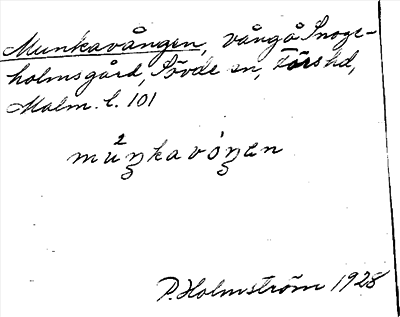 Munkavången, vång å Snoge-
holmsgård, Sövde sn, Färs hd,
Malm. l. 101
mu²ŋkavóŋen
P. Holmström 1928